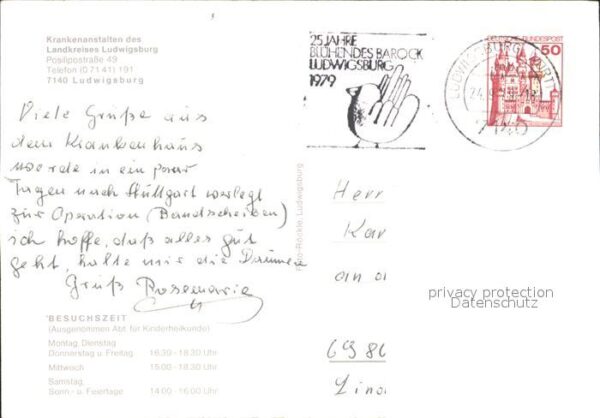 Krankenanstalten des
Landkreises Ludwigsburg
Posilipostraße 49
Telefon (0 71 41) 191
7140 Ludwigsburg
25 JAHRE
BLÜHENDES BAROCK
LUDWIGSBURG
1979
DEUTSCHE BUNDESPOST
50
LUDWIGSBURG
24.9.79-18
7140
Viele Grüße aus
dem Krankenhaus
werde in ein paar
Tagen nach Stuttgart verlegt
zur Operation (Bandscheiben)
ich hoffe, daß alles gut
geht, halte mir die Daumen
Gruß Rosemarie
Foto-Rönkle, Ludwigsburg
Herr
Kar
an d
6986
Lind
privacy protection
Datenschutz
BESUCHSZEIT
(Ausgenommen Abt. für Kinderheilkunde)
Montag, Dienstag
Donnerstag u. Freitag 16.30 - 18.30 Uhr
Mittwoch 15.00 - 18.30 Uhr
Samstag,
Sonn- u. Feiertage 14.00 - 16.00 Uhr